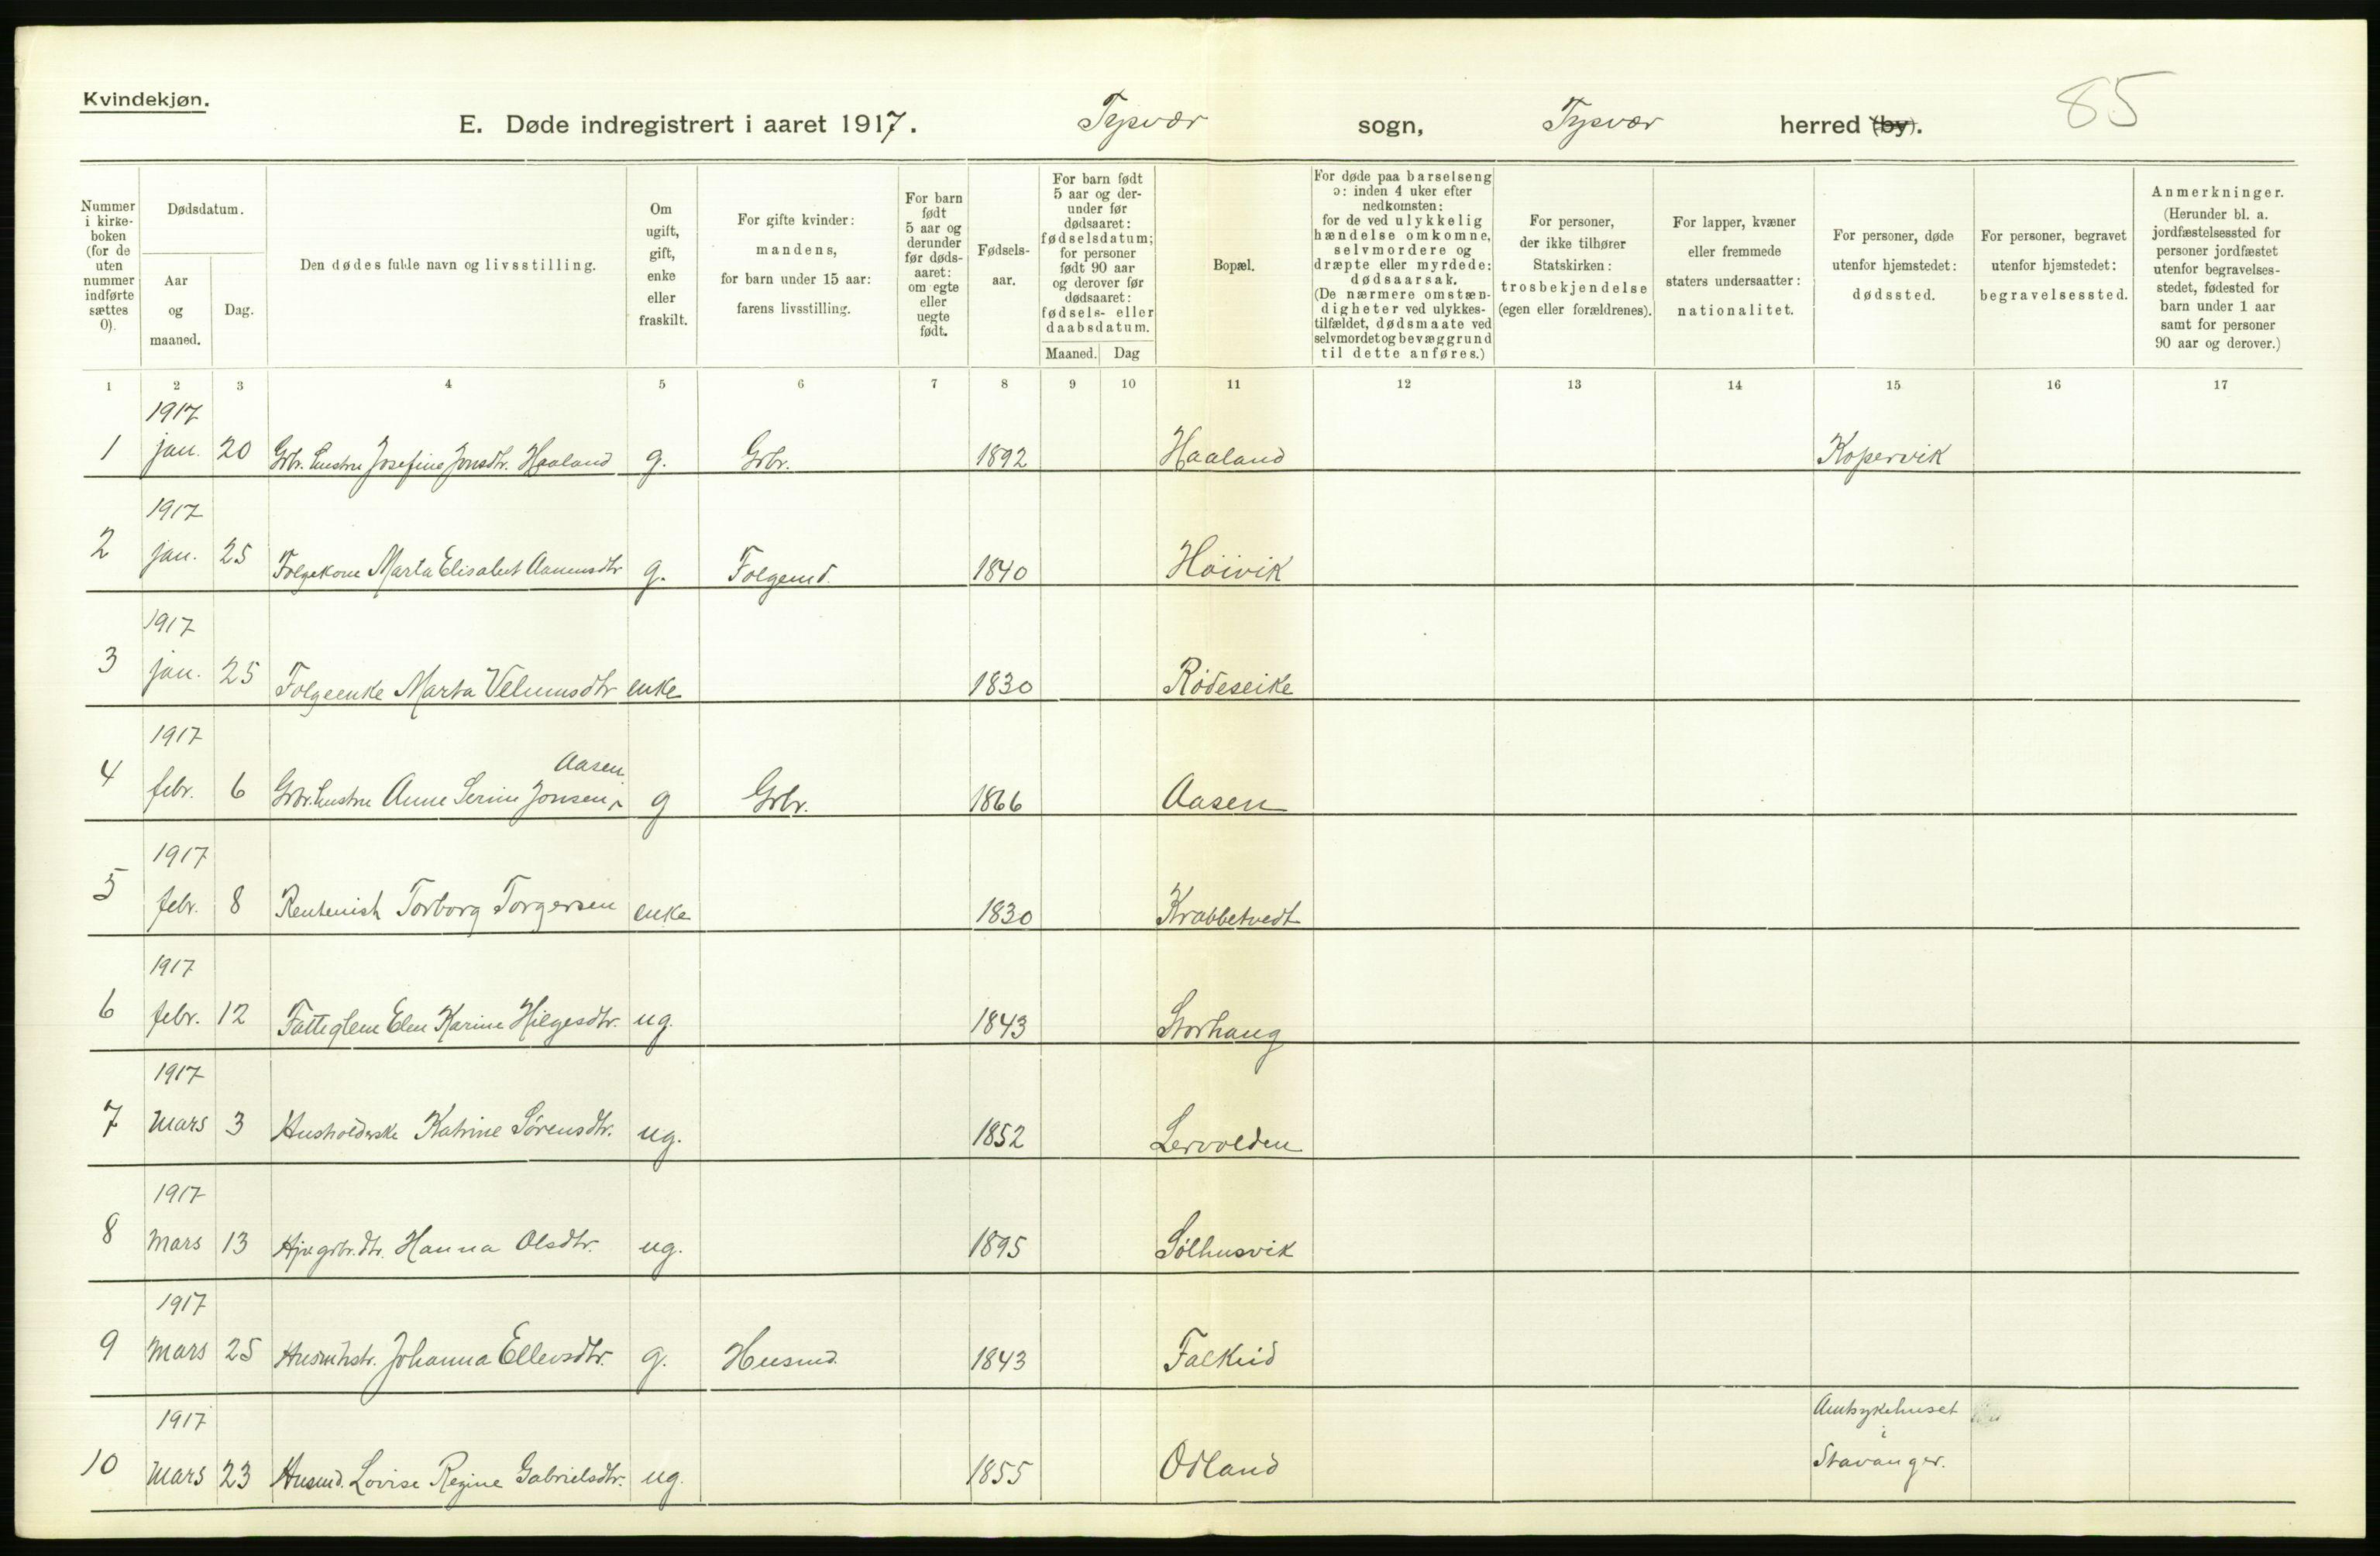 Kvindekjøn.
E. Døde indregistrert i aaret 1917. Tysvær sogn, Tysvær herred (by).
85
Nummer i kirke-boken (for de uten nummer indførte sættes 0).
Dødsdatum.
Aar og maaned.
Dag.
Den dødes fulde navn og livsstilling.
Om ugift, gift, enke eller fraskilt.
For gifte kvinder: mandens, for barn under 15 aar: farens livsstilling.
For barn født 5 aar og derunder før døds-aaret: om egte eller uegte født.
Fødsels-aar.
For barn født 5 aar og der-under før dødsaaret: fødselsdatum; for personer født 90 aar og derover før dødsaaret: fødsels- eller daabsdatum.
Maaned. Dag
Bopæl.
For døde paa barselseng ɔ: inden 4 uker efter nedkomsten: for de ved ulykkelig hændelse omkomne, selvmordere og dræpte eller myrdede: dødsaarsak. (De nærmere omstæn-digheter ved ulykkes-tilfældet, dødsmaate ved selvmordet og bevæggrund til dette anføres.)
For personer, der ikke tilhører Statskirken: trosbekjendelse (egen eller forældrenes).
For lapper, kvæner eller fremmede staters undersaatter: nationalitet.
For personer, døde utenfor hjemstedet: dødssted.
For personer, begravet utenfor hjemstedet: begravelsessted.
Anmerkninger. (Herunder bl. a. jordfæstelsessted for personer jordfæstet utenfor begravelses-stedet, fødested for barn under 1 aar samt for personer 90 aar og derover.)
1 2 3 4 5 6 7 8 9 10 11 12 13 14 15 16 17
1917
1 jan. 20 Grbr. hustru Josefine Jonsdtr. Haaland g. Grbr. 1892 Haaland Kopervik
1917
2 jan. 25 Folgekone Marta Elisabet Aamunsdtr g. Folgemd. 1840 Høivik
1917
3 jan. 25 Folgeenke Marta Velumsdtr enke 1830 Rødeseike
1917
Aasen
4 febr. 6 Grbr. hustru Anne Serine Jonsen g Grbr. 1866 Aasen
1917
5 febr. 8 Rentenist Torborg Torgersen enke 1830 Krabbetvedt
1917
6 febr. 12 Fattiglem Elen Karine Helgesdtr. ug. 1843 Storhaug
1917
7 Mars 3 Husholderske Katrine Sørensdtr. ug. 1852 Lervolden
1917
8 Mars 13 Hjv grbr. dtr. Hanna Olsdtr. ug. 1895 Sølhusvik
1917
9 Mars 25 Husmhstr. Johanna Ellevsdtr. g. Husmd. 1843 Falkeid
1917 Amtsykehuset
i
10 Mars 23 Husmd. Lovise Regine Gabrielsdtr. ug. 1855 Odland Stavanger.